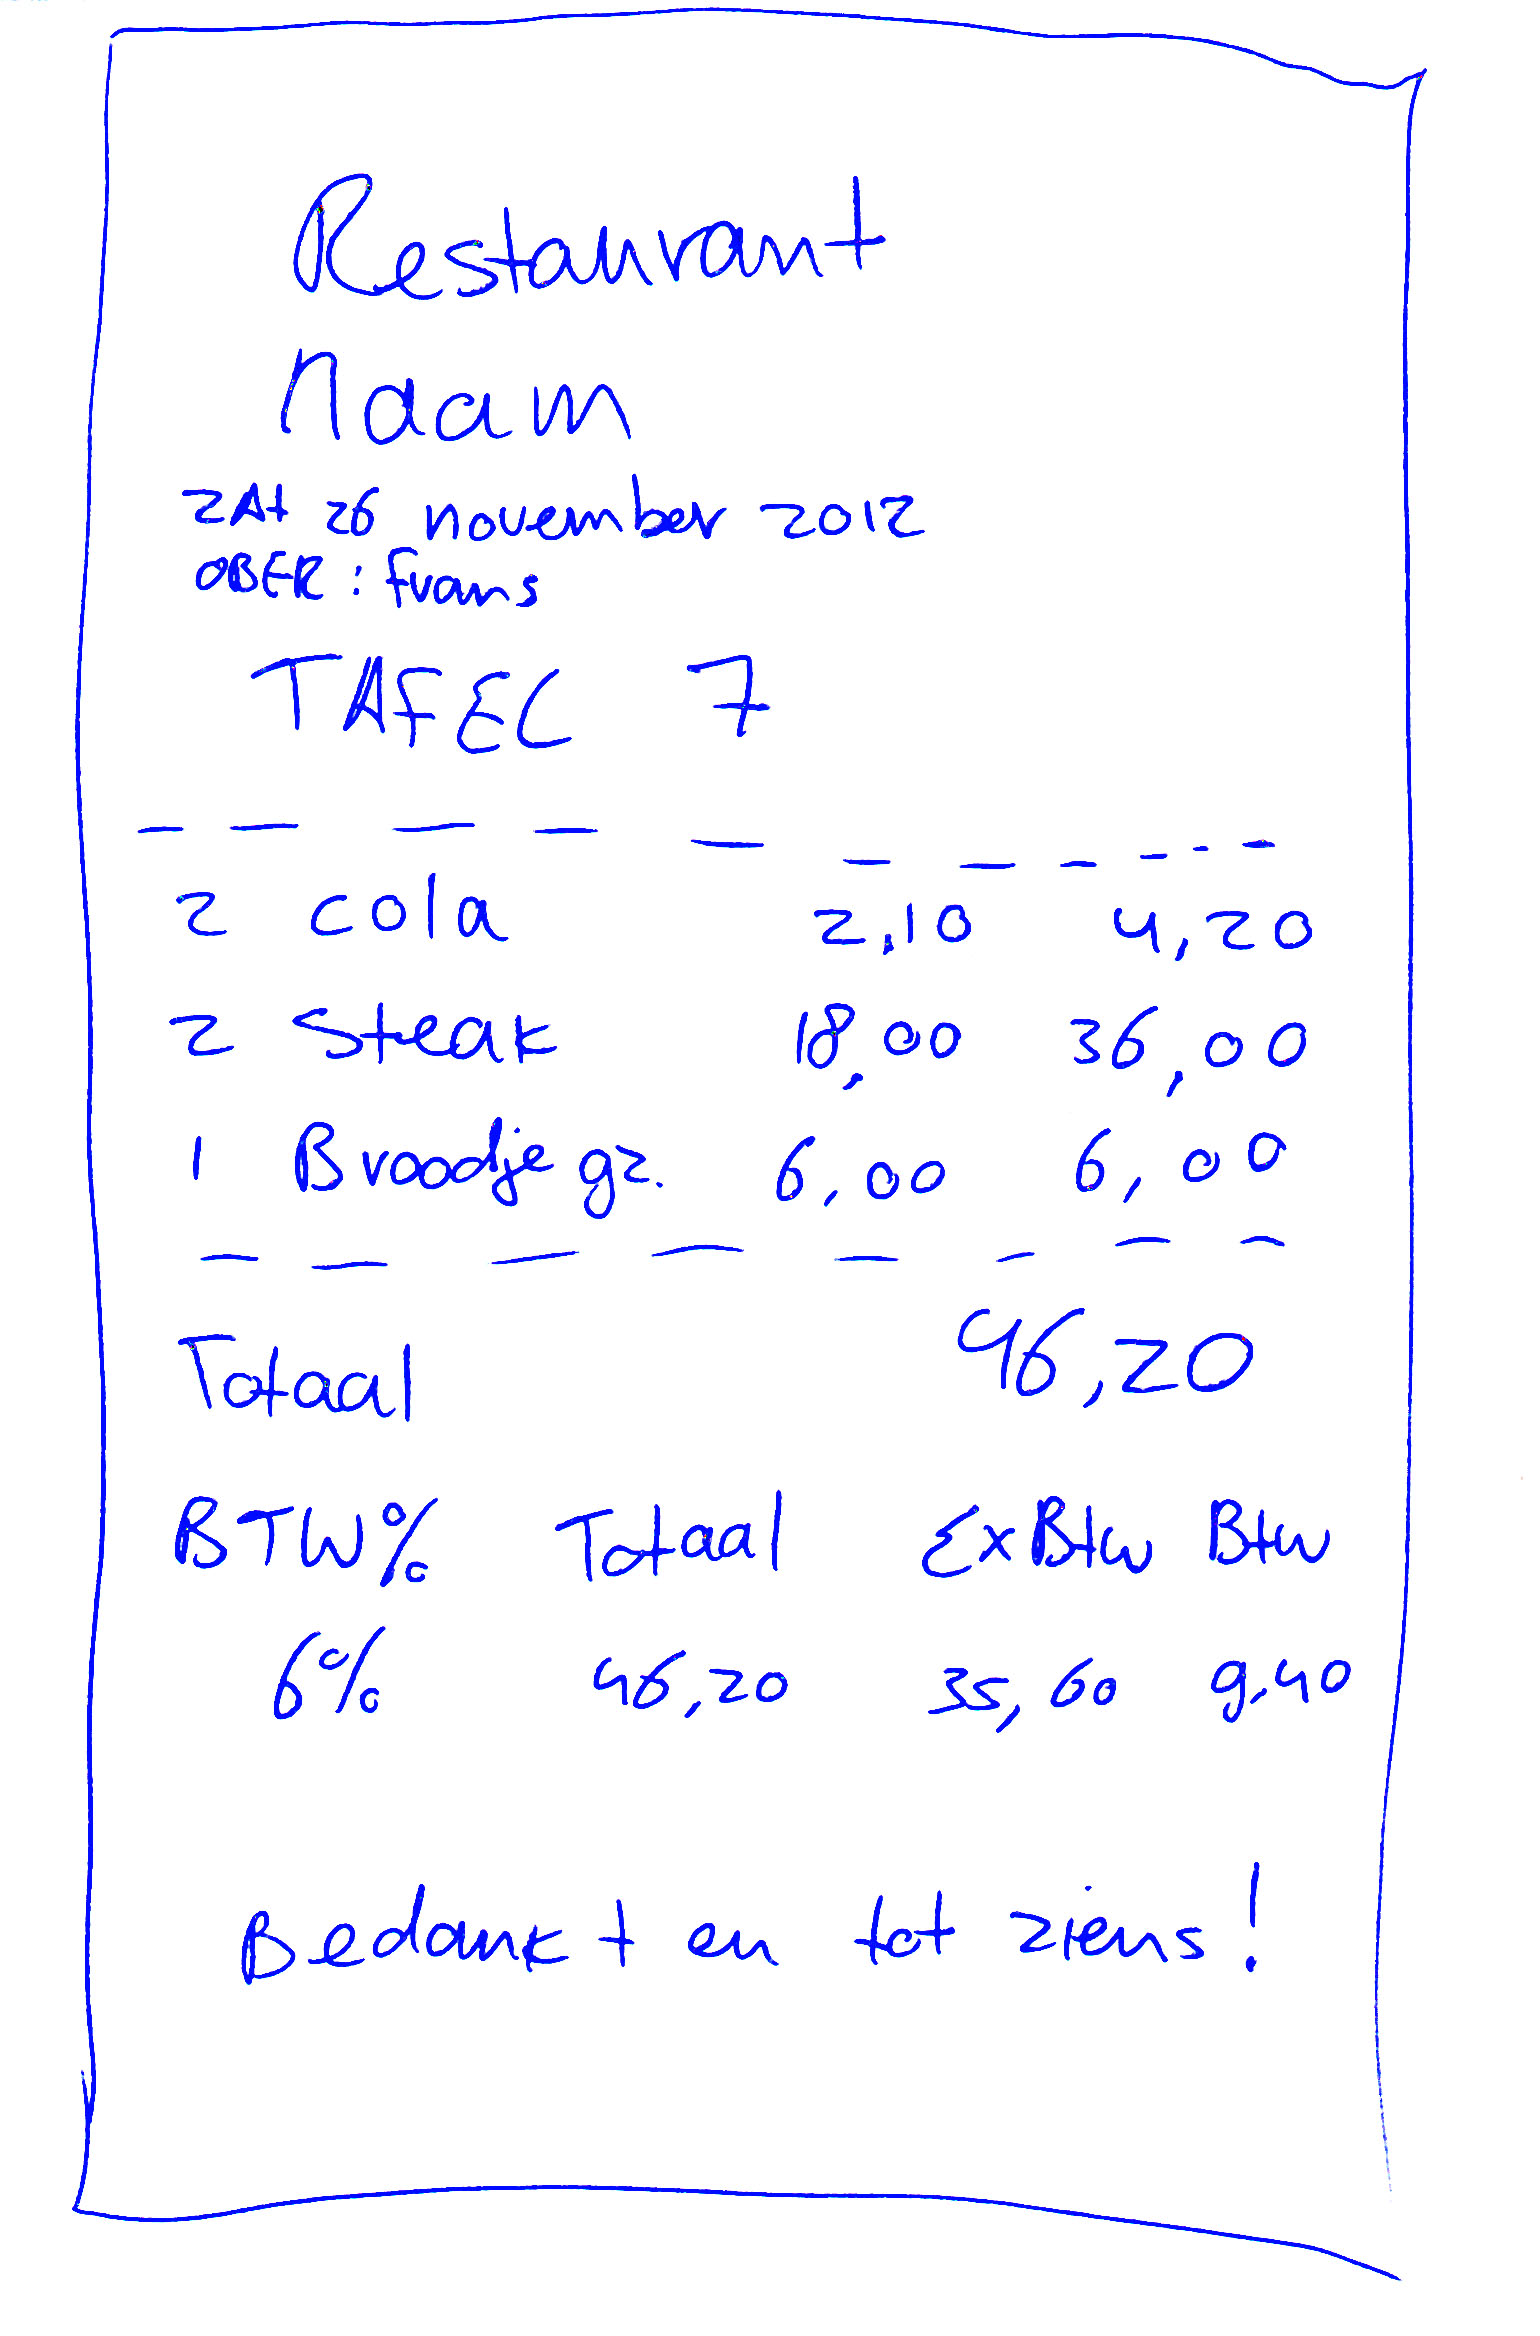 Restaurant
Naam
ZAt 26 november 2012
OBER: frans
TAFEL 7
2 cola 2,10 4,20
2 Steak 18,00 36,00
1 Broodje gz. 6,00 6,00
Totaal 46,20
BTW% Totaal ExBtw Btw
6% 46,20 35,60 9.40
Bedankt en tot ziens!